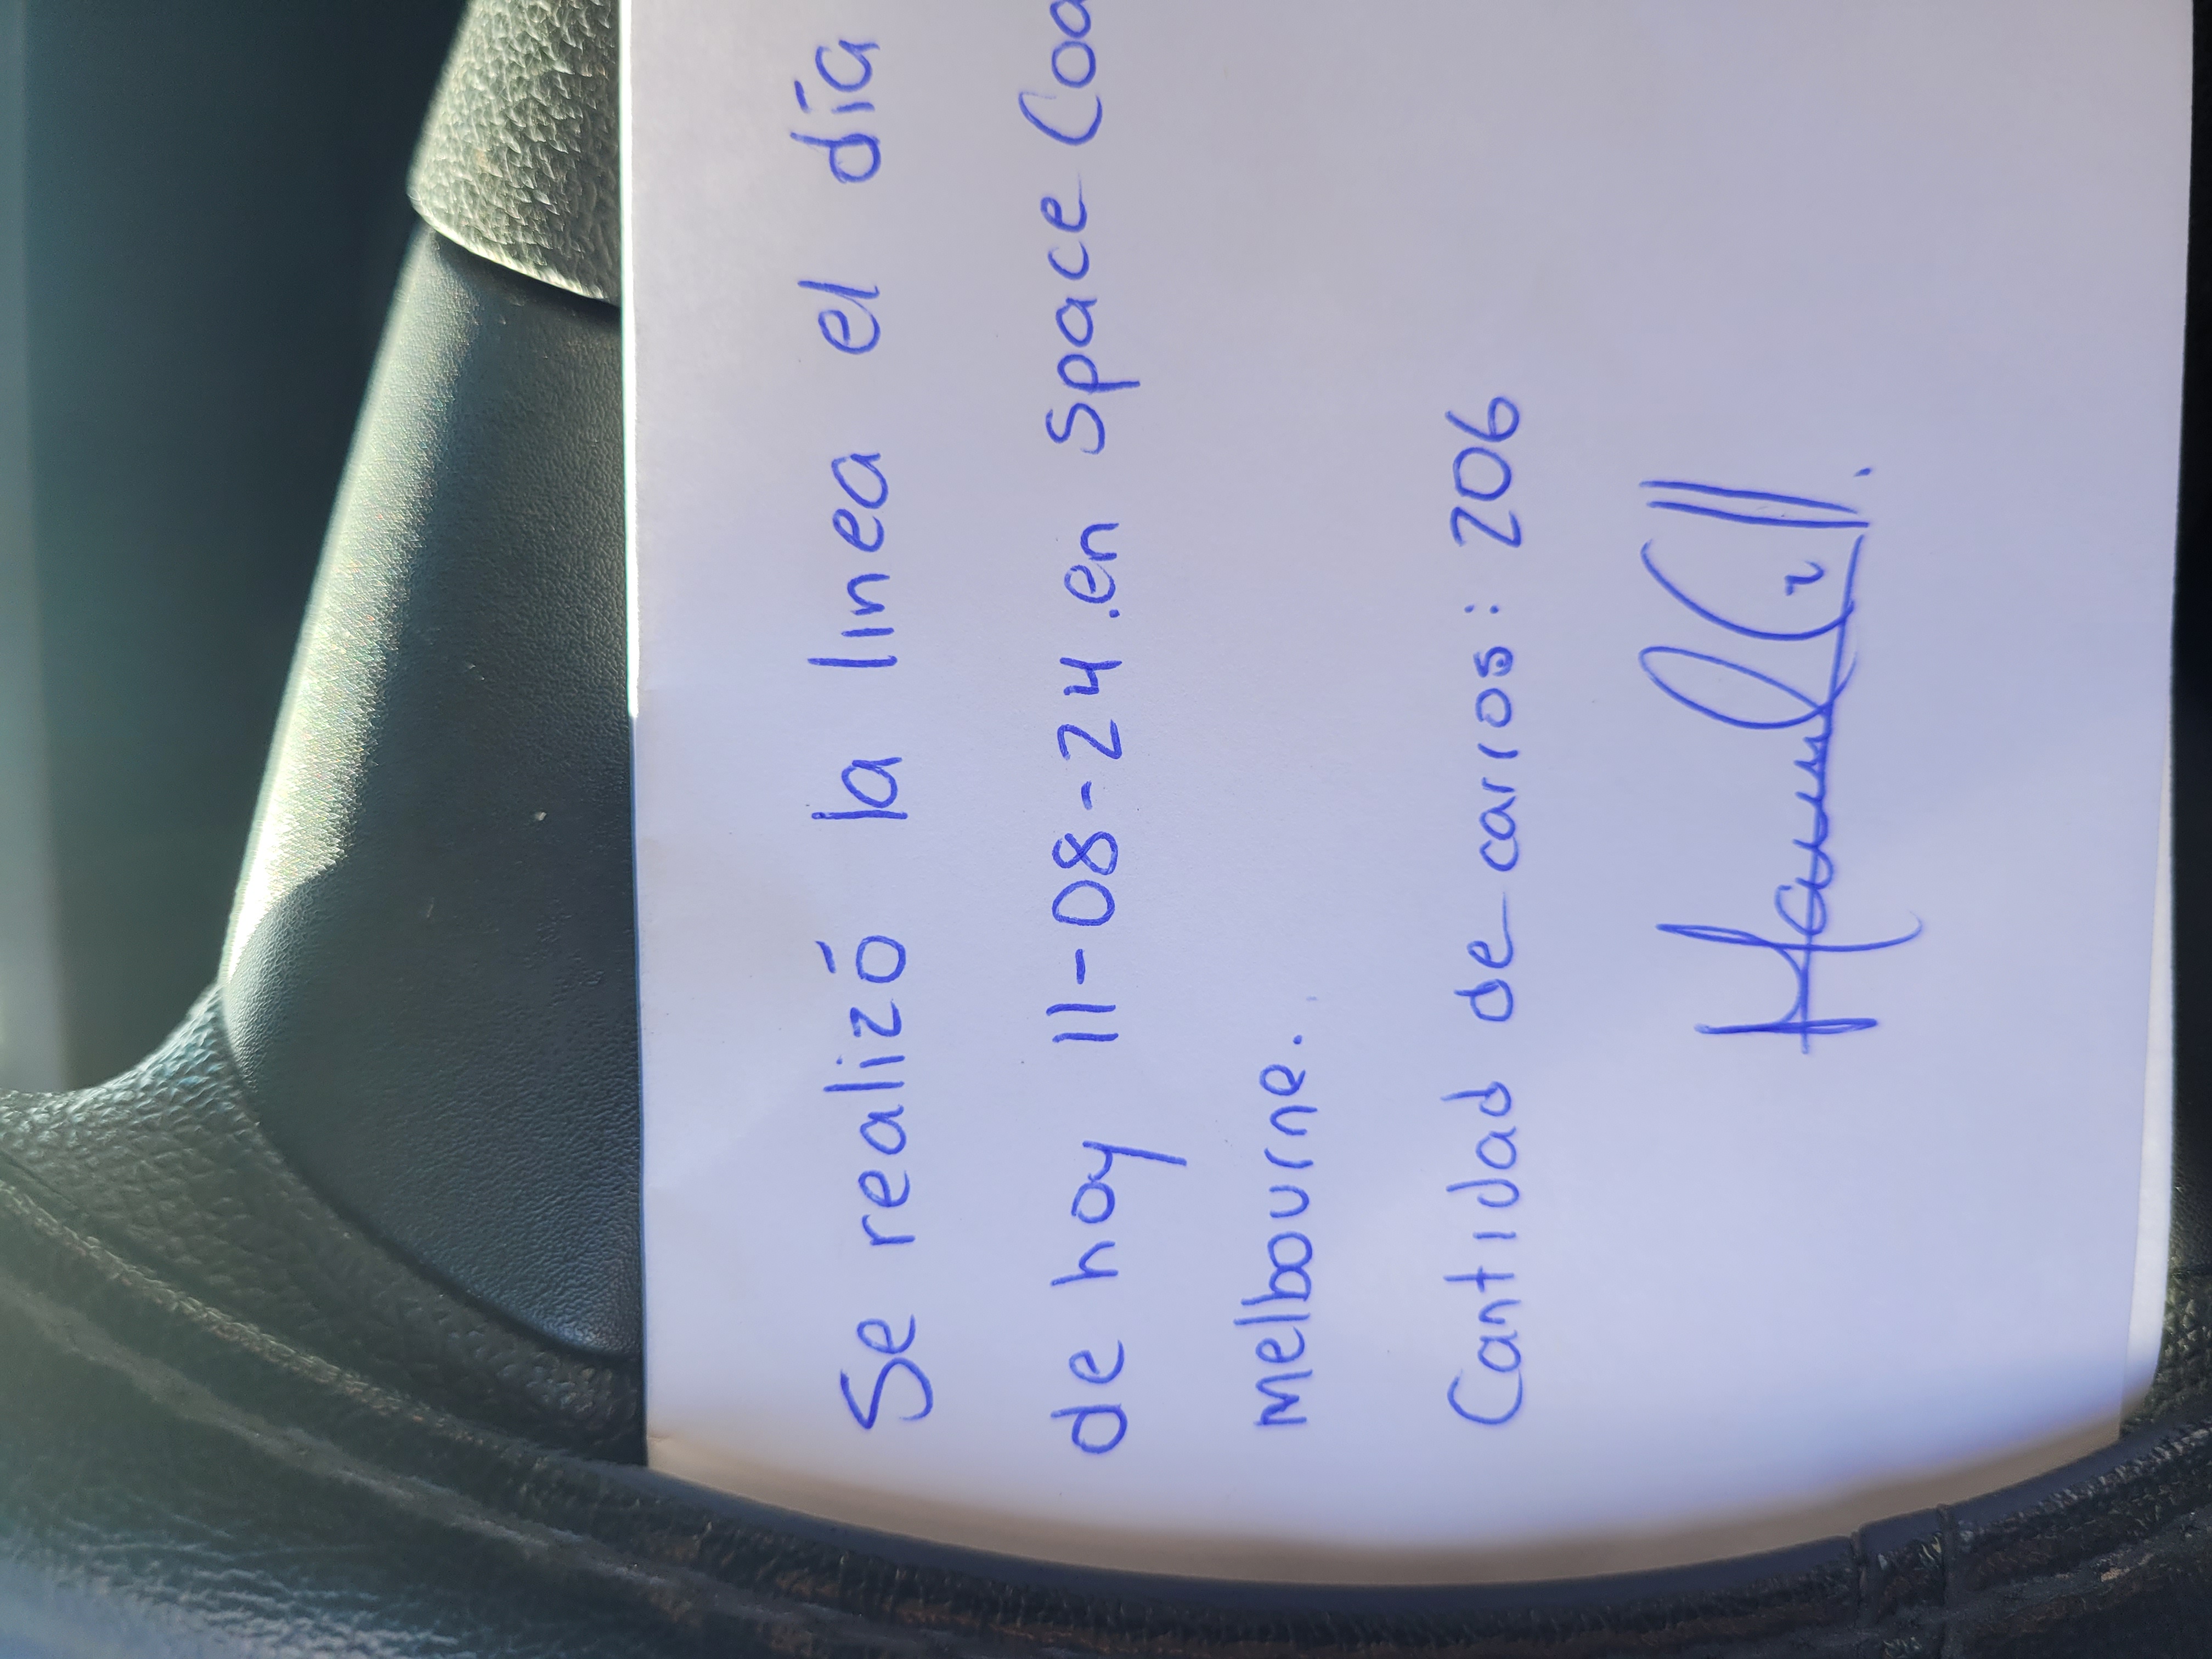 Se realizó la linea el día
de hoy 11-08-24.en Space Coa
Melbourne.
Cantidad de carros: 206